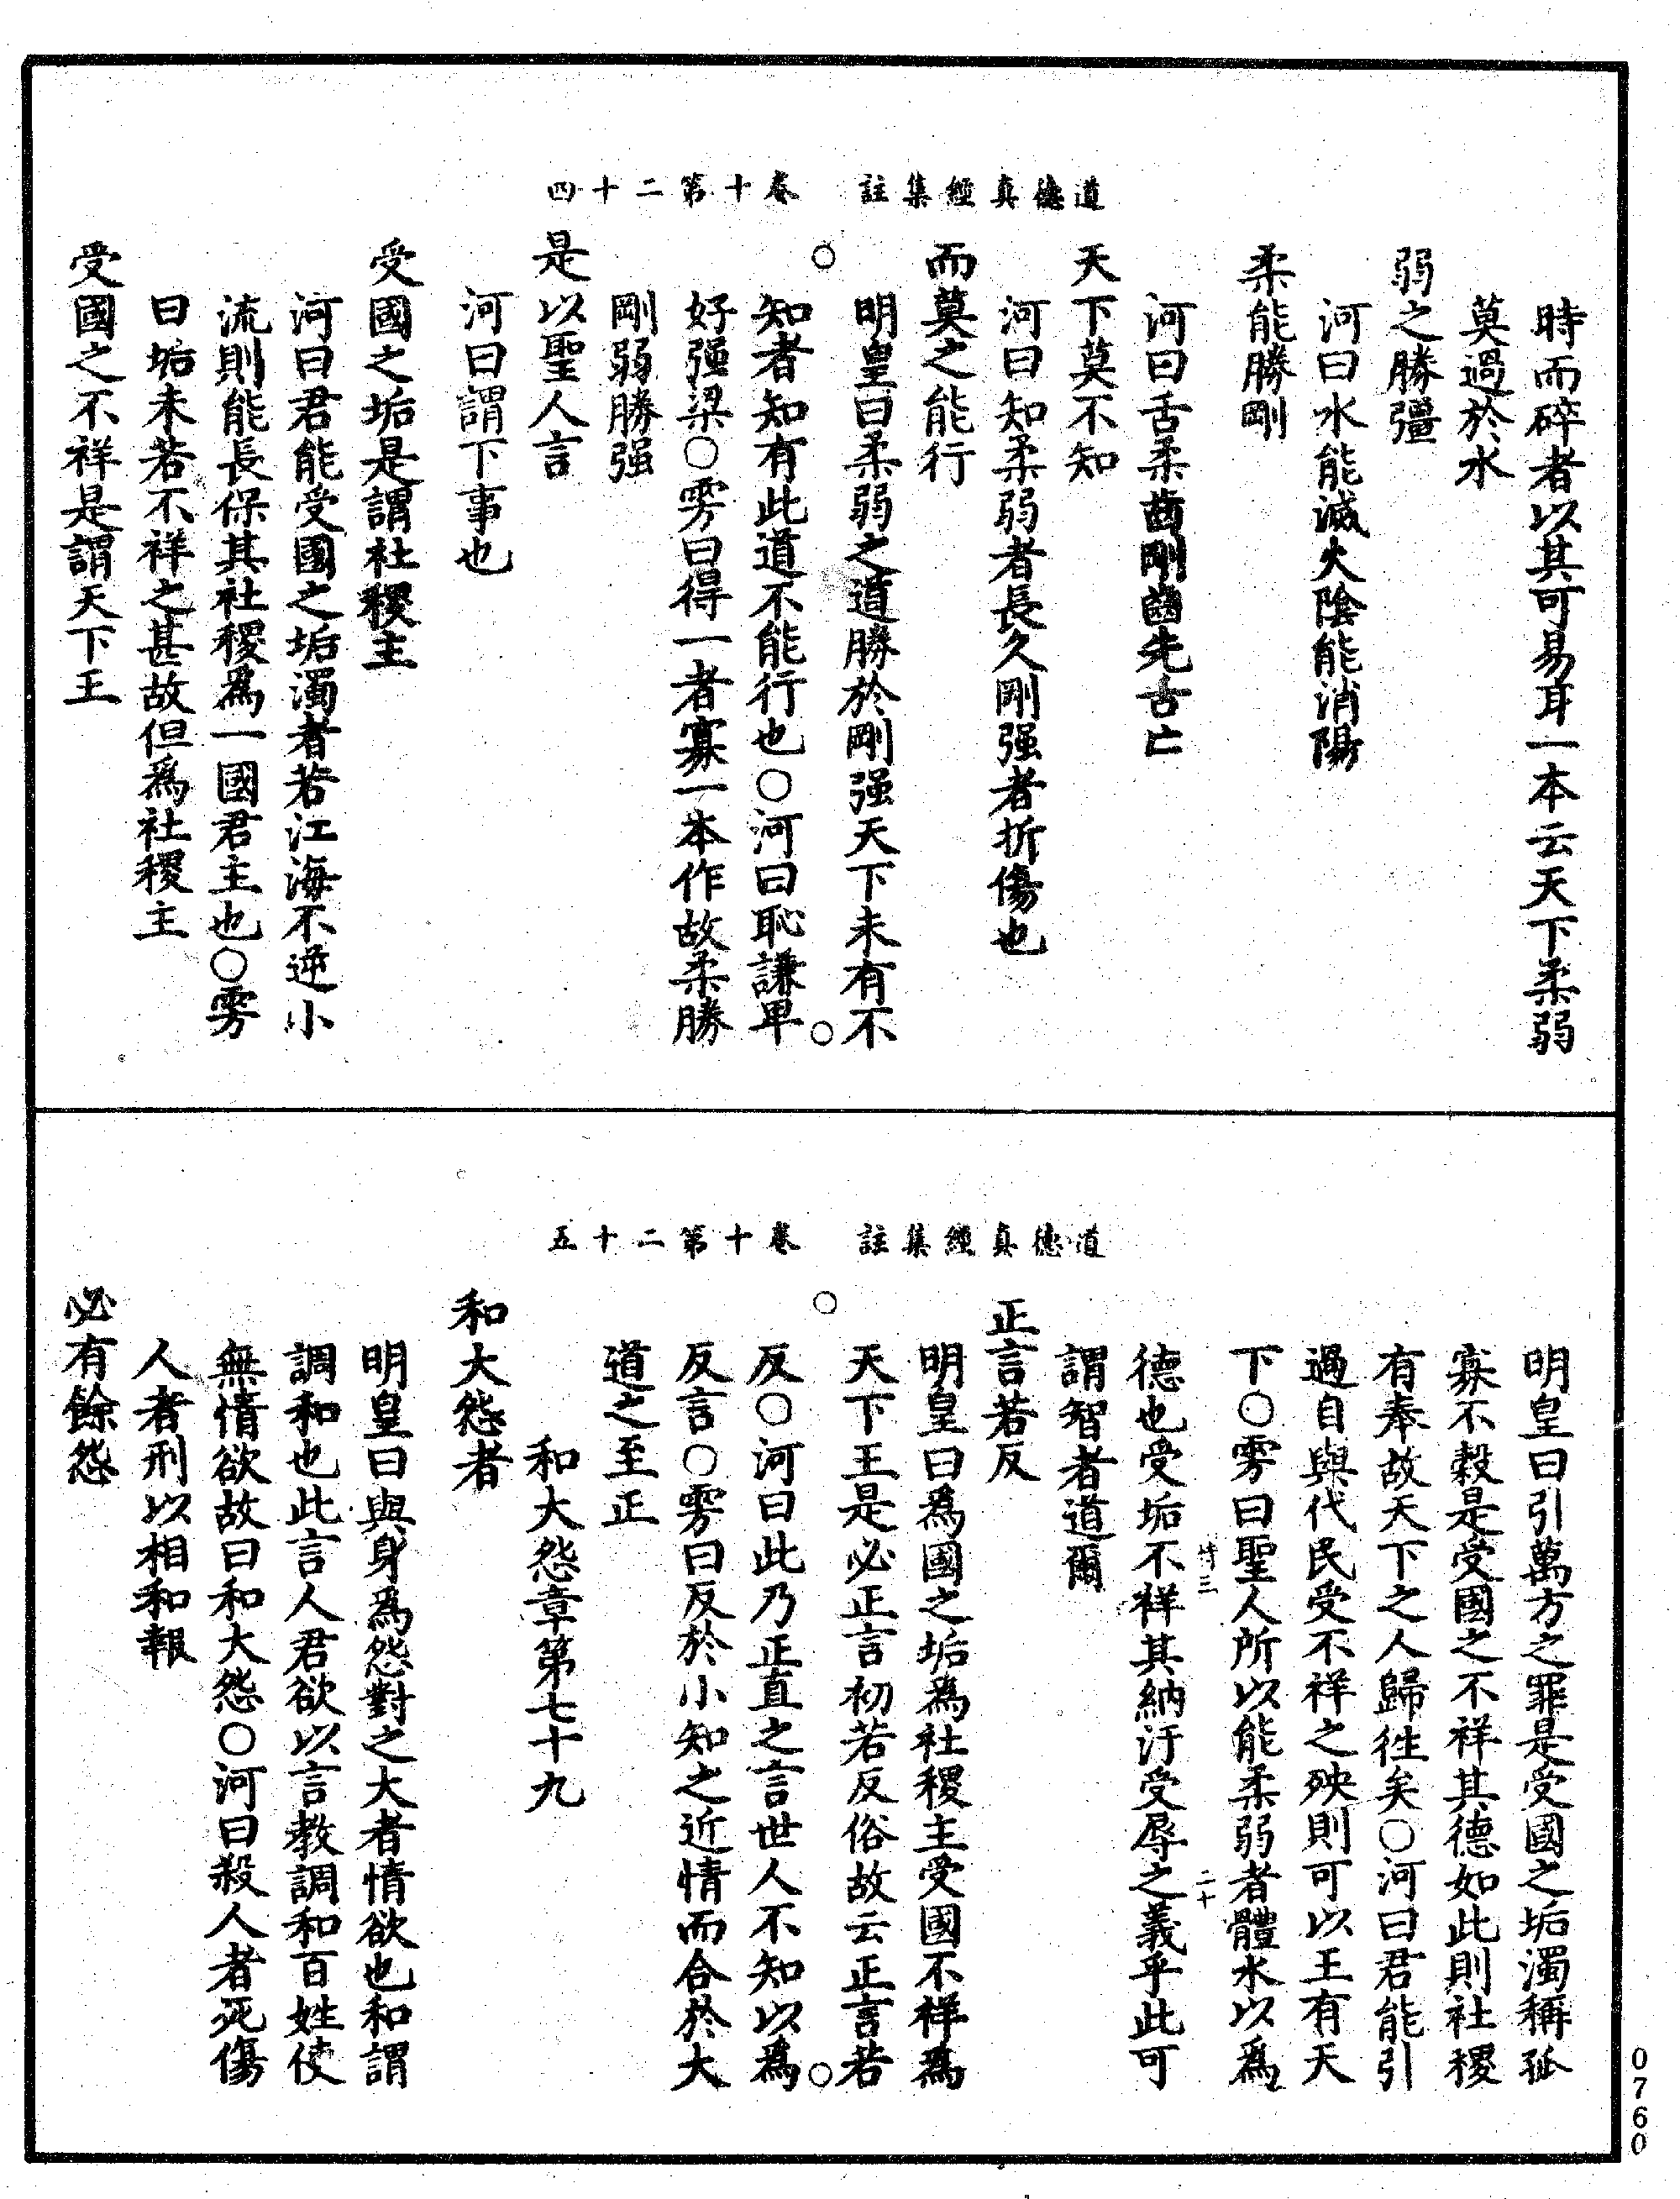 道德真經集註　卷十第二十四
時而碎者以其可易耳一本云天下柔弱
莫過於水
弱之勝彊
河曰水能滅火陰能消陽
柔能勝剛
河曰舌柔齒剛齒先舌亡
天下莫不知
河曰知柔弱者長久剛强者折傷也
而莫之能行
明皇曰柔弱之道勝於剛强天下未有不
知者知有此道不能行也○河曰恥謙卑
好强梁○雱曰得一者寡一本作故柔勝
剛弱勝强
是以聖人言
河曰謂下事也
受國之垢是謂社稷主
河曰君能受國之垢濁者若江海不逆小
流則能長保其社稷爲一國君主也○雱
曰垢未若不祥之甚故但爲社稷主
受國之不祥是謂天下王
道德真經集註　卷十第二十五
明皇曰引萬方之罪是受國之垢濁稱孤
寡不穀是受國之不祥其德如此則社稷
有奉故天下之人歸徃矣○河曰君能引
過自與代民受不祥之殃則可以王有天
下○雱曰聖人所以能柔弱者體水以爲
德也受垢不祥其納汙受辱之義乎此可
謂智者道爾
正言若反
明皇曰爲國之垢爲社稷主受國不祥爲
天下王是必正言初若反俗故云正言若
反○河曰此乃正直之言世人不知以爲
反言○雱曰反於小知之近情而合於大
道之至正
和大怨章第七十九
和大怨者
明皇曰與身爲怨對之大者情欲也和謂
調和也此言人君欲以言教調和百姓使
無情欲故曰和大怨○河曰殺人者死傷
人者刑以相和報
必有餘怨
0760